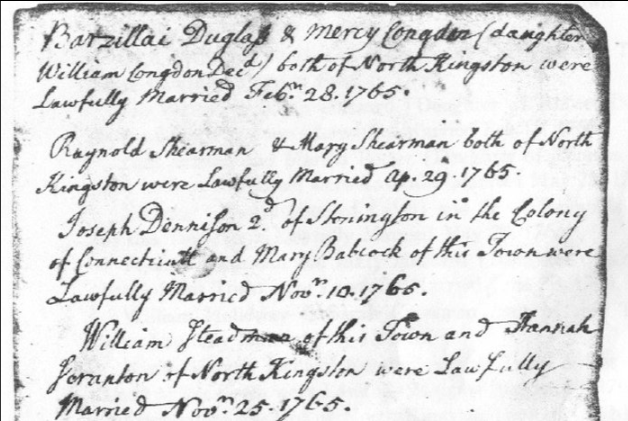 Barzillai Duglass & Mercy Congdon (daughter
William Congdon Decd) both of North Kingston were
Lawfully Married Febr. 28. 1765.
Raynold Shearman & Mary Shearman both of North
Kingston were Lawfully Married Ap. 29. 1765.
Joseph Dennison 2d. of Stonington in the Colony
of Connecticutt and Mary Babcock of this Town were
Lawfully Married Novr. 10. 1765.
William Steadman of this Town and Hannah
Scranton of North Kingston were Lawfully
Married Novr. 25. 1765.